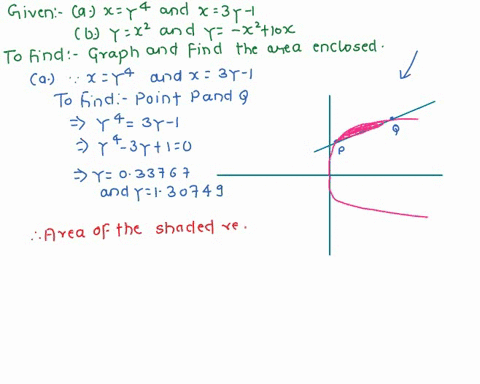 Given:- (a.) x=y⁴ and x=3y-1
(b.) y=x² and y=-x²+10x
To Find:- Graph and Find the area enclosed.
(a.) ∵ x=y⁴ and x=3y-1
To Find:- Point P and Q
⇒ y⁴=3y-1
⇒ y⁴-3y+1=0
⇒ y=0.33767
and y=1.30749
∴ Area of the shaded re.
P
Q